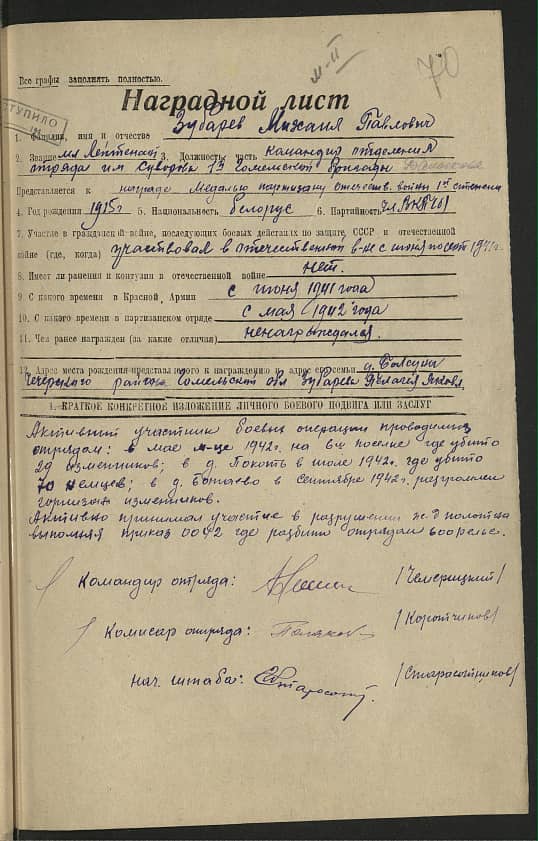 М-II
70
Все графы заполнять полностью.
СТУПИЛО
Наградной лист
1. Фамилия, имя и отчество Зубарев Михаил Павлович
2. Звание мл Лейтенант 3. Должность, часть командир отделения
отряда им Суворова 1й Гомельской бригады
Представляется к награде Медалью партизану отечеств. войны 1ой степени
4. Год рождения 1915г 5. Национальность белорус 6. Партийность чл ВКП(б)
7. Участие в гражданской войне, последующих боевых действиях по защите СССР и отечественной
войне (где, когда) участвовал в отечественной в-не с июня по 1941г.
8. Имеет ли ранения и контузии в отечественной войне нет.
9. С какого времени в Красной Армии с июня 1941 года
10. С какого времени в партизанском отряде с мая 1942 года
11. Чем ранее награжден (за какие отличия) ненаграждался.
12. Адрес места рождения представляемого к награждению и адрес его семьи д.
Чечерского района Гомельской обл Зубарева Пелагея
1. КРАТКОЕ КОНКРЕТНОЕ ИЗЛОЖЕНИЕ ЛИЧНОГО БОЕВОГО ПОДВИГА ИЛИ ЗАСЛУГ
Активный участник боевых операции проводимых
отрядам: в мае м-це 1942г. на где убито
29 изменников; в д. Покоть в июле 1942г. где убито
70 немцев; в д. в сентябре 1942г. разгромлен
горнизон изменников.
Активно принимал участие в разрушении ж. д полотна
выполняя приказ 0042 где разбито отрядам 600 рельс.
Командир отряда: /Чемерицкий/
Комисар отряда: /Коротчиков/
нач. штаба: /Старасотников/